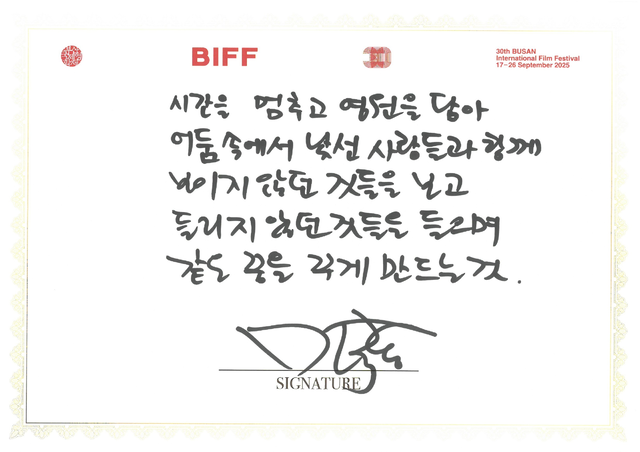 BIFF
30th BUSAN
International Film Festival
17–26 September 2025
시간을 멈추고 영원을 담아
어둠 속에서 낯선 사람들과 함께
보이지 않던 것들을 보고
들리지 않던 것들을 들으며
같은 꿈을 꾸게 만드는 것.
SIGNATURE